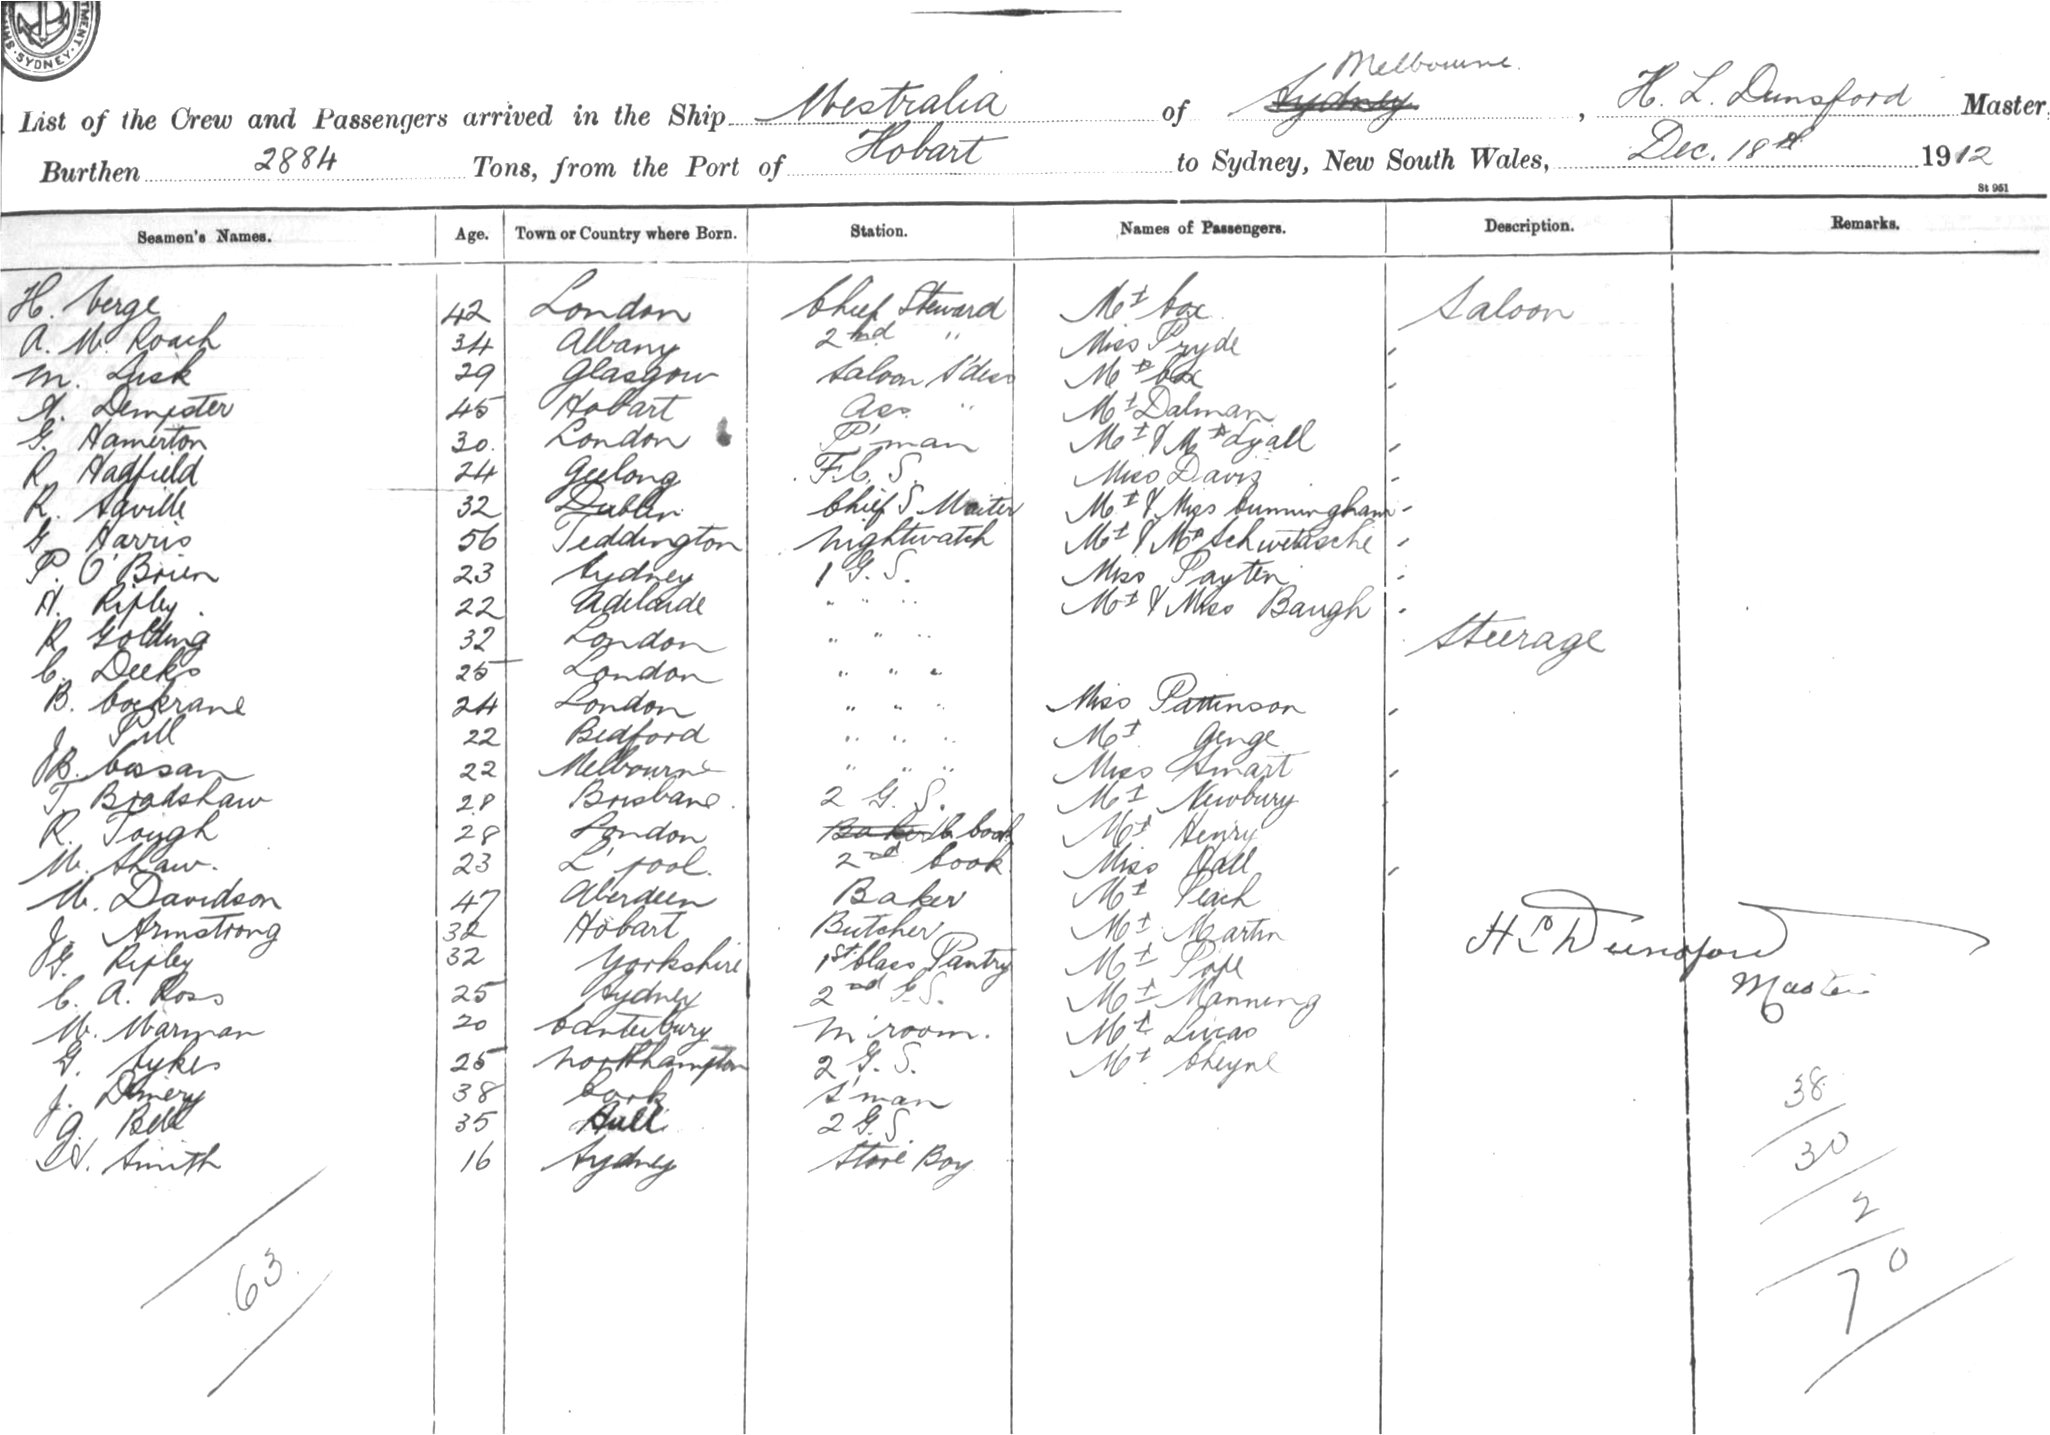 SYDNEY
Melbourne
List of the Crew and Passengers arrived in the Ship Westralia of Sydney, H. L. Dunsford Master,
Burthen 2884 Tons, from the Port of Hobart to Sydney, New South Wales, Dec. 18th 1912
St 951
Seamen's Names. Age. Town or Country where Born. Station. Names of Passengers. Description. Remarks.
H. Verge 42 London Chief Steward Mr Cox Saloon
A. W. Roach 34 Albany 2nd " Miss Pryde
M. Lusk 29 Glasgow Saloon S'dess Mrs Cox
A. Dempster 45 Hobart Ass. " Mr Dalman
G. Hamerton 30. London P'man Mr & Mrs Lyall
R. Hadfield 24 Geelong F.C. S. Miss Davis
R. Saville 32 Dublin Chief S Waiter Mr & Miss Cunningham
G. Harris 56 Teddington Nightwatch Mr & Mrs
P. O'Brien 23 Sydney 1 G. S. Miss Payten
H. Ripley. 22 Adelaide " " " Mr & Miss Baugh
R. Golding 32 London " " " Steerage
C. Deeks 25 London " " "
B. Cockrane 24 London " " " Miss Pattinson
J. Pill 22 Bedford " " " Mr Genge
B. Cassan 22 Melbourne " " " Miss Smart
T. Bradshaw 28 Brisbane. 2 G. S. Mr Newbury
R. Tough 28 London Baker Ch. Cook Mr Henry
W. Shaw. 23 L'pool. 2nd Cook Miss Hall
W. Davidson 47 Aberdeen Baker Mr Peach
J. Armstrong 32 Hobart Butcher Mr Martin H L Dunsford
G. Ripley 32 Yorkshire 1st Class Pantry Mr Pope Master
C. A. Ross 25 Sydney 2nd C. S. Mr Manning
W. Warman 20 Canterbury M'room. Mr Lucas
G. Sykes 25 Northhampton 2 G. S. Mr Cheyne
J. 38 Cork S'man 38
G. Bell 35 Hull 2 G. S.
H. Smith 16 Sydney Store Boy 30
2
63 70